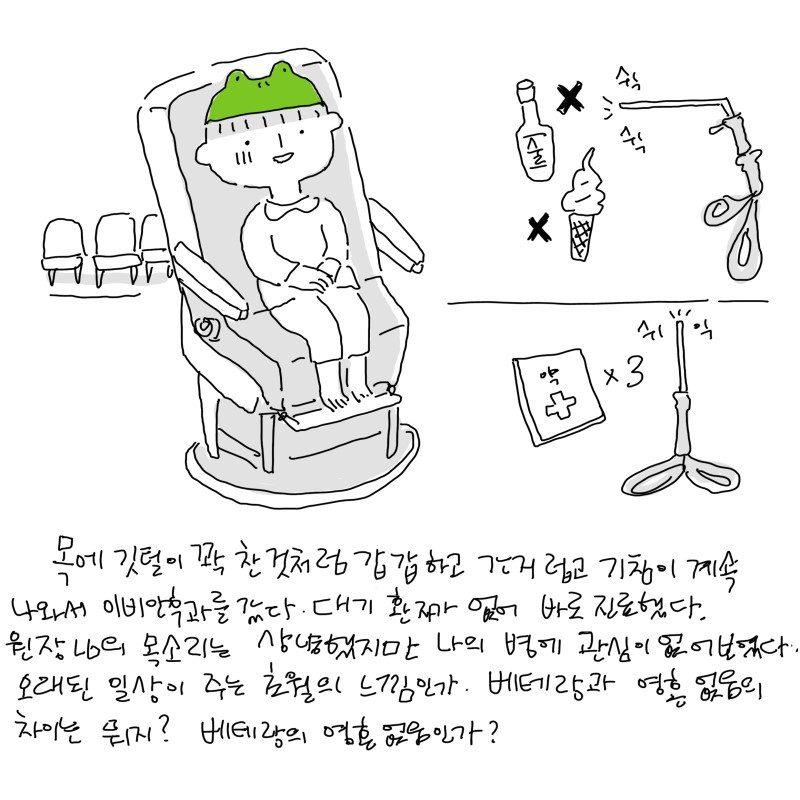 슉
슉
술
쉬 익
약
x 3
목에 깃털이 꽉 찬것처럼 갑갑하고 간지럽고 기침이 계속
나와서 이비인후과를 갔다. 대기 환자가 없어 바로 진료했다.
원장님의 목소리는 상냥했지만 나의 병에 관심이 없어보였다.
오래된 일상이 주는 초월의 느낌인가. 베테랑과 영혼 없음의
차이는 뭐지? 베테랑의 영혼 없음인가?